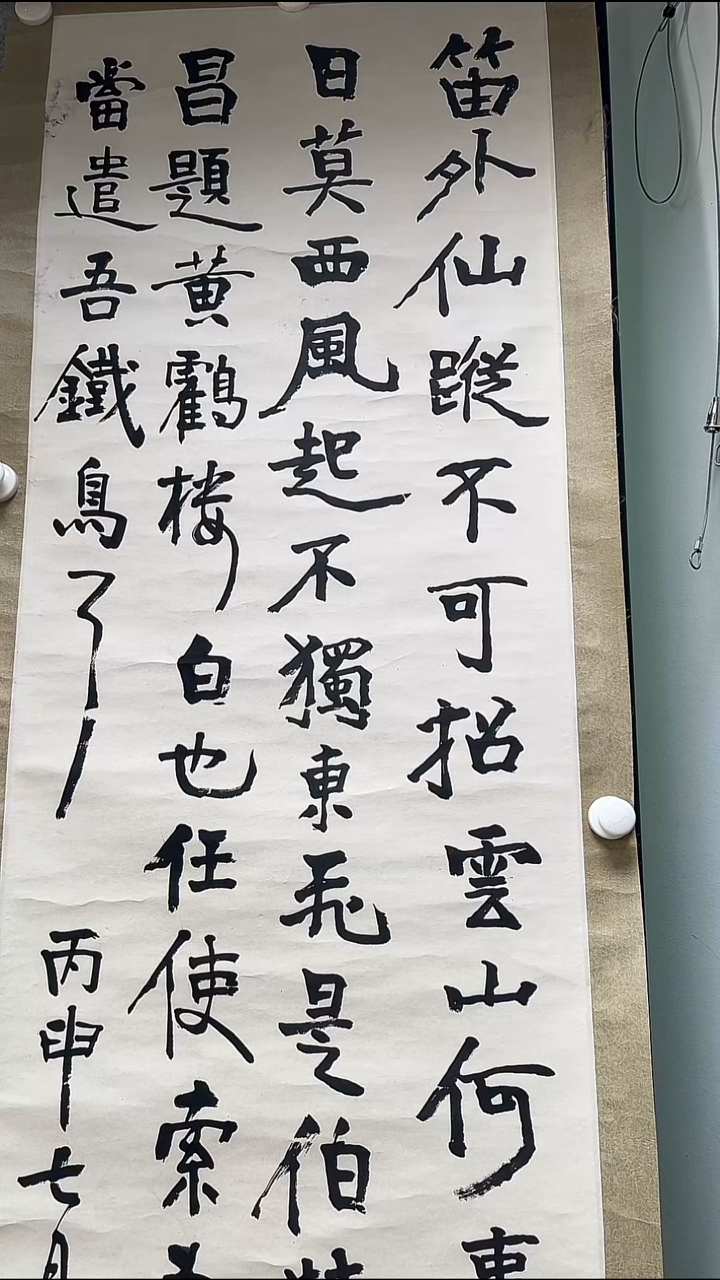 笛外仙蹤不可招雲山何事
日莫西風起不獨東飛是伯
昌題黃鶴樓白也任使索
當遣吾鐵鳥了丙申七月